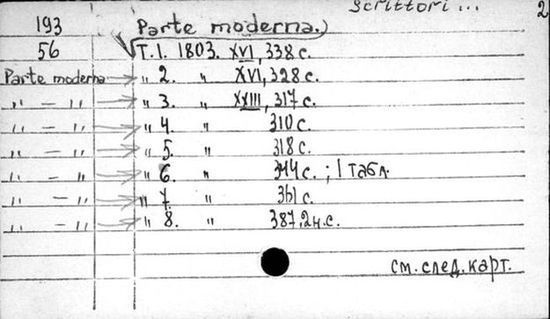 Scrittori... 2
193 Parte moderna.)
56 T.1. 1803. XVI, 338 с.
Parte moderna → „ 2. „ XVI, 328 с.
„ — „ → „ 3. „ XXIII, 317 с.
„ — „ → „ 4. „ 310 с.
„ — „ → „ 5. „ 318 с.
„ — „ → „ 6. „ 344 с.; 1 табл.
„ — „ → „ 7. „ 361 с.
„ — „ → „ 8. „ 387, 2 н.с.
см. след. карт.